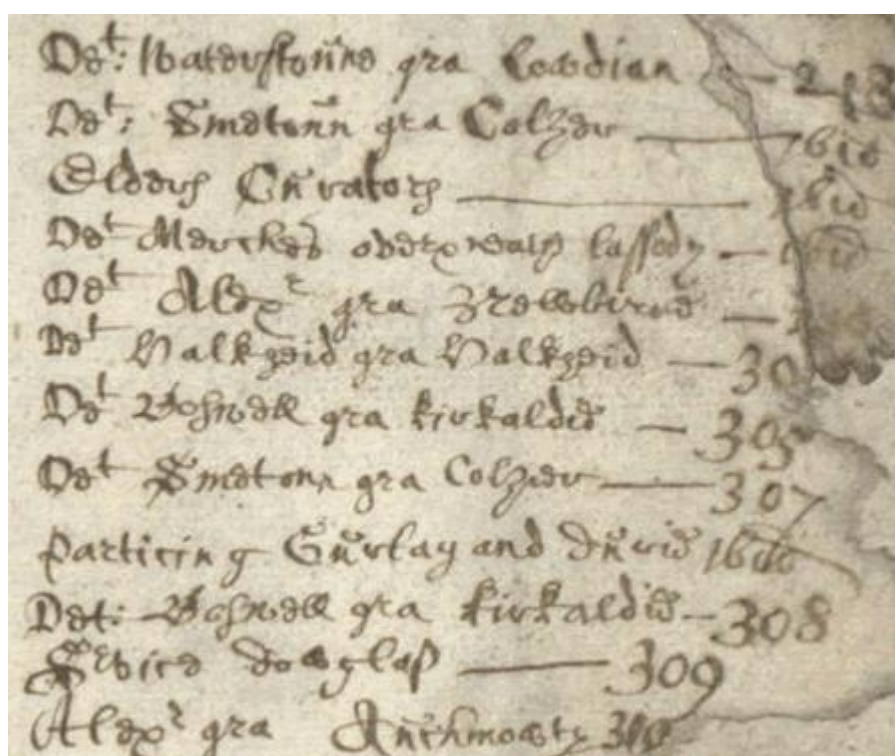 Det: Waterstoune gra Lowdian — 298
Det: Smetoun gra Colzear — ibid
Elders Curators — ibid
Det Merches overx lassody — ibid
Det Alexr gra
Det Valkzeid gra Valkzeid — 30
Det Boswell gra kirkaldie — 305
Det Smetonn gra Colzear — 307
particing Gurlay and durie ibid
Det: Boswell gra kirkaldie — 308
Service dowglass — 309
Alexr gra Auchmowty 310